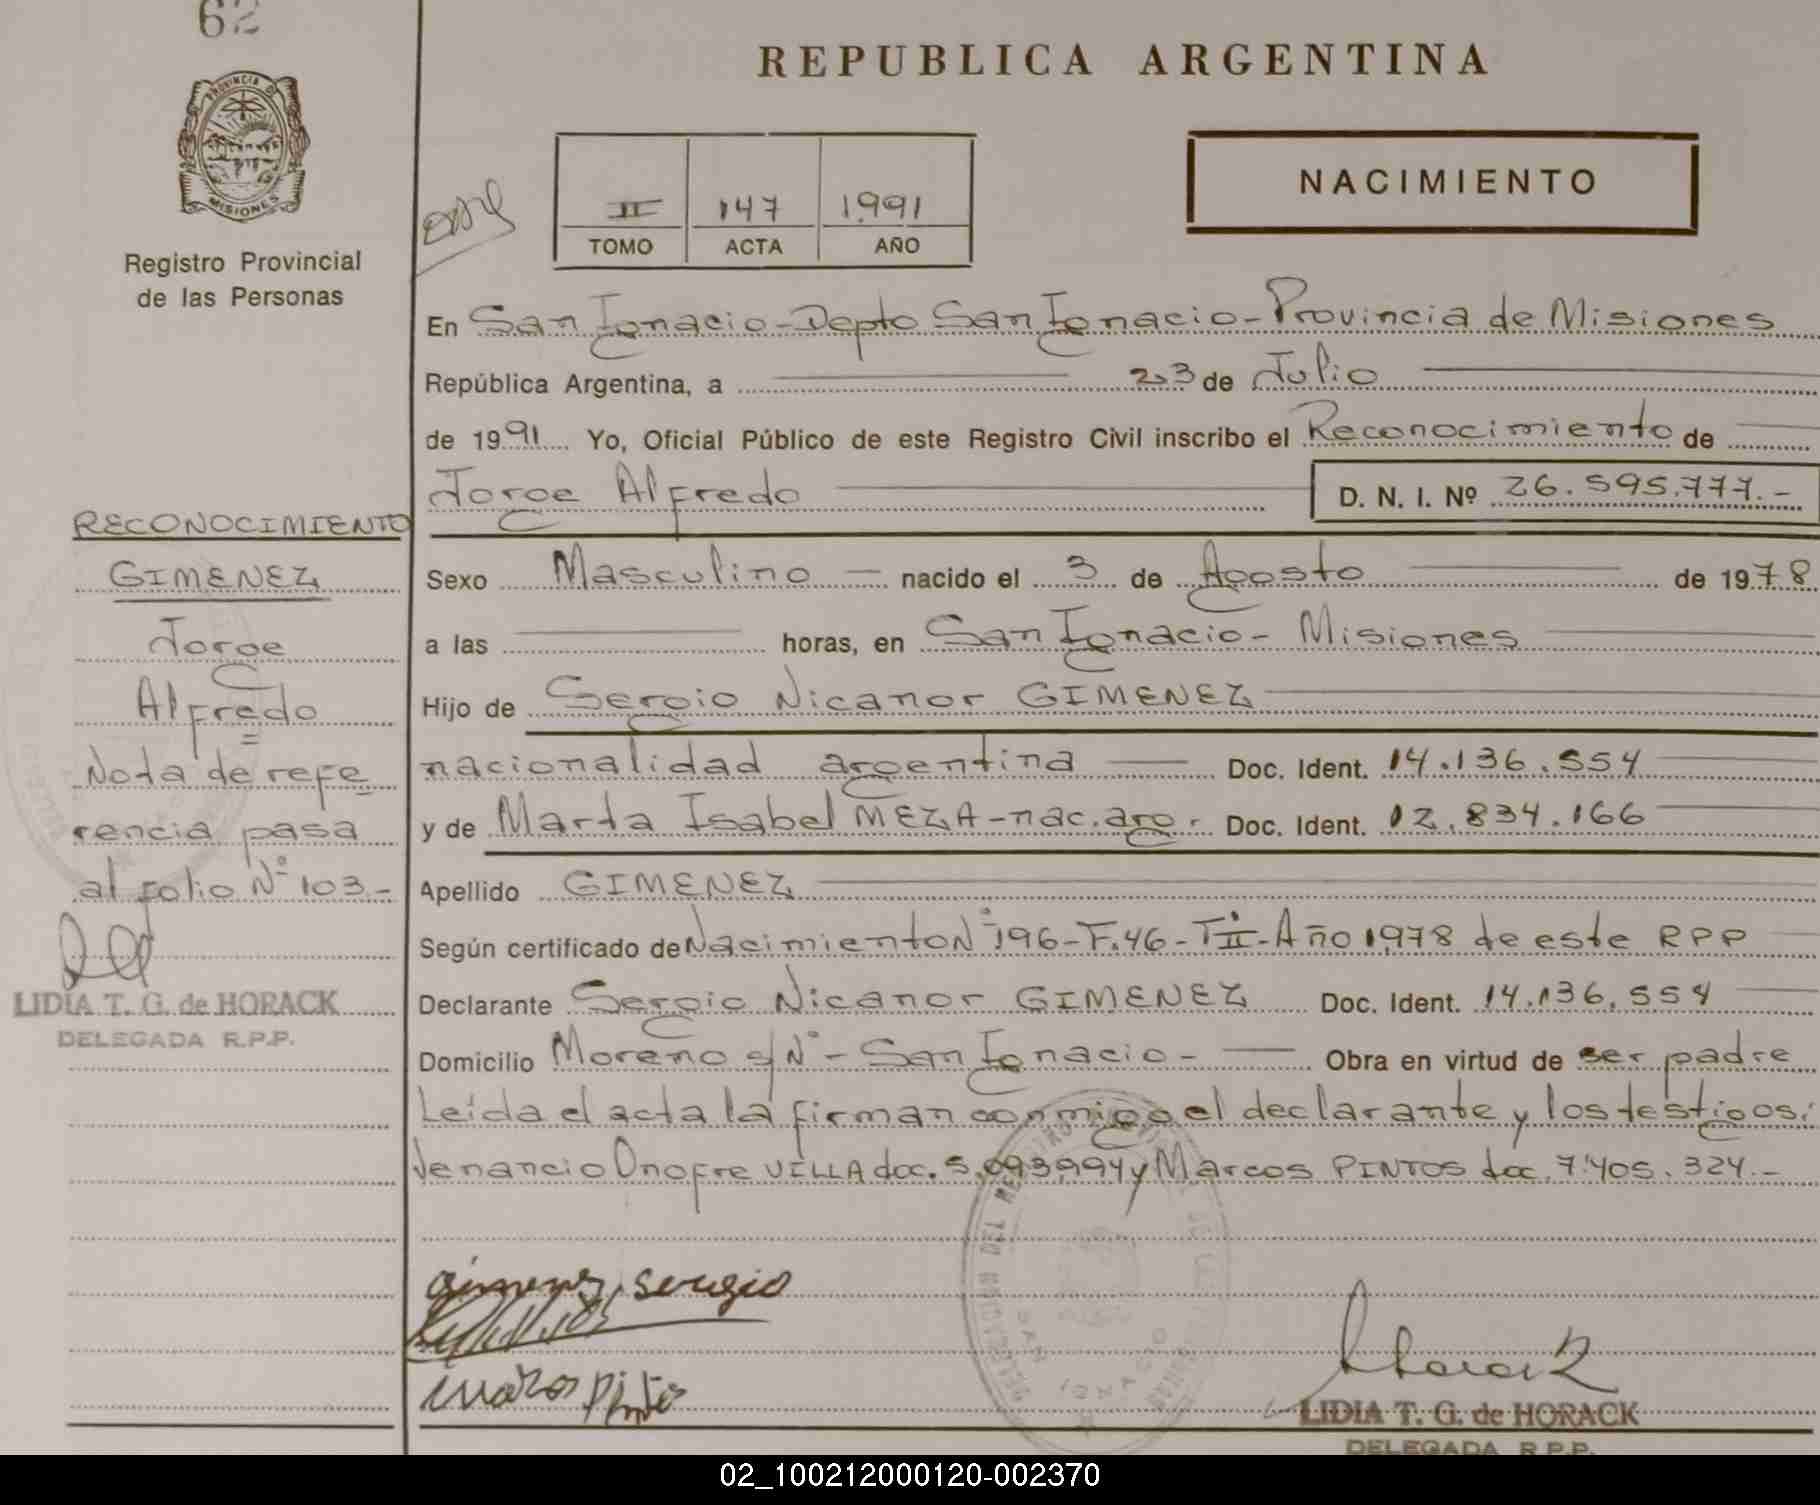 62
REPUBLICA ARGENTINA
PROVINCIA DE
MISIONES
Registro Provincial
de las Personas
II 147 1.991
TOMO ACTA AÑO
NACIMIENTO
En San Ignacio - Depto San Ignacio - Provincia de Misiones
República Argentina, a 23 de Julio
de 1991 Yo, Oficial Público de este Registro Civil inscribo el Reconocimiento de
Jorge Alfredo D. N. I. Nº 26.595.777.-
Sexo Masculino — nacido el 3 de Agosto de 1978
a las horas, en San Ignacio - Misiones
Hijo de Sergio Nicanor GIMENEZ
nacionalidad argentina Doc. Ident. 14.136.554
y de Marta Isabel MEZA - nac. arg. Doc. Ident. 12.834.166
Apellido GIMENEZ
Según certificado de Nacimiento Nº 196 - F. 46 - T II - Año 1978 de este RPP
Declarante Sergio Nicanor GIMENEZ Doc. Ident. 14.136.554
Domicilio Moreno s/Nº - San Ignacio - Obra en virtud de ser padre
Leída el acta la firman conmigo el declarante y los testigos:
Venancio Onofre VILLA doc. 5.093.994 y Marcos PINTOS doc. 7.405.324.-
Gimenez, sergio
Marcos Pintos
Horack
LIDIA T. G. de HORACK
DELEGADA R.P.P.
RECONOCIMIENTO
GIMENEZ
Jorge
Alfredo
Nota de refe
rencia pasa
al folio Nº 103.-
LIDIA T. G. de HORACK
DELEGADA R.P.P.
SAN IGNACIO
02_100212000120-002370